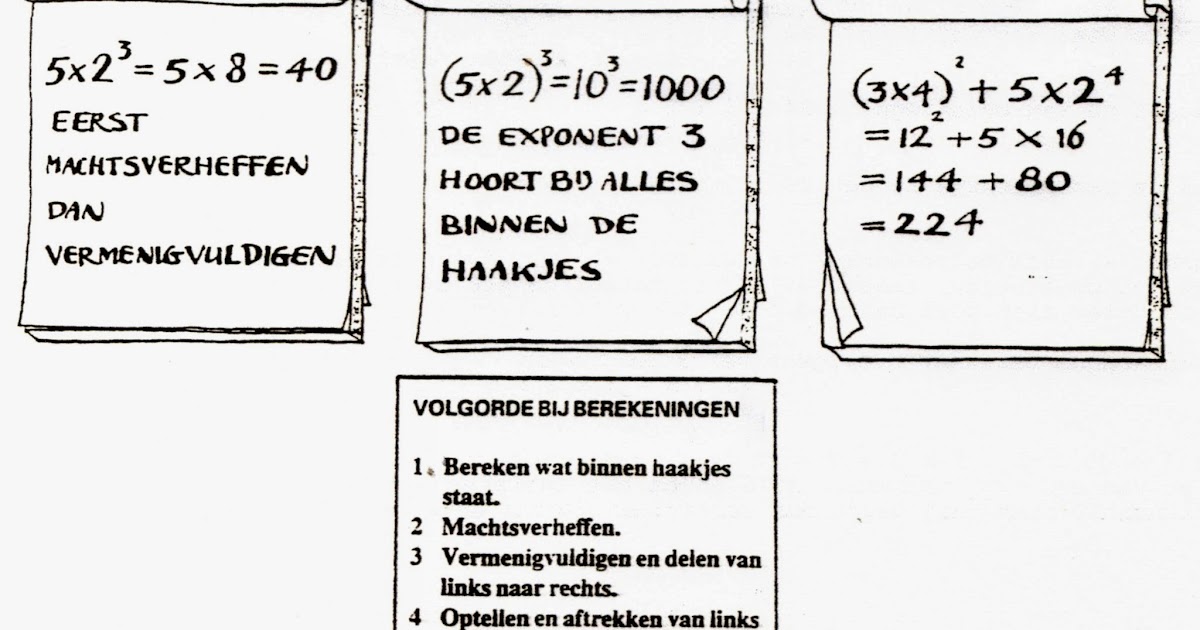 5x2³ = 5 x 8 = 40
EERST
MACHTSVERHEFFEN
DAN
VERMENIGVULDIGEN
(5x2)³ = 10³ = 1000
DE EXPONENT 3
HOORT BIJ ALLES
BINNEN DE
HAAKJES
(3x4)² + 5 x 2⁴
= 12² + 5 x 16
= 144 + 80
= 224
VOLGORDE BIJ BEREKENINGEN
1. Bereken wat binnen haakjes
staat.
2 Machtsverheffen.
3 Vermenigvuldigen en delen van
links naar rechts.
4 Optellen en aftrekken van links